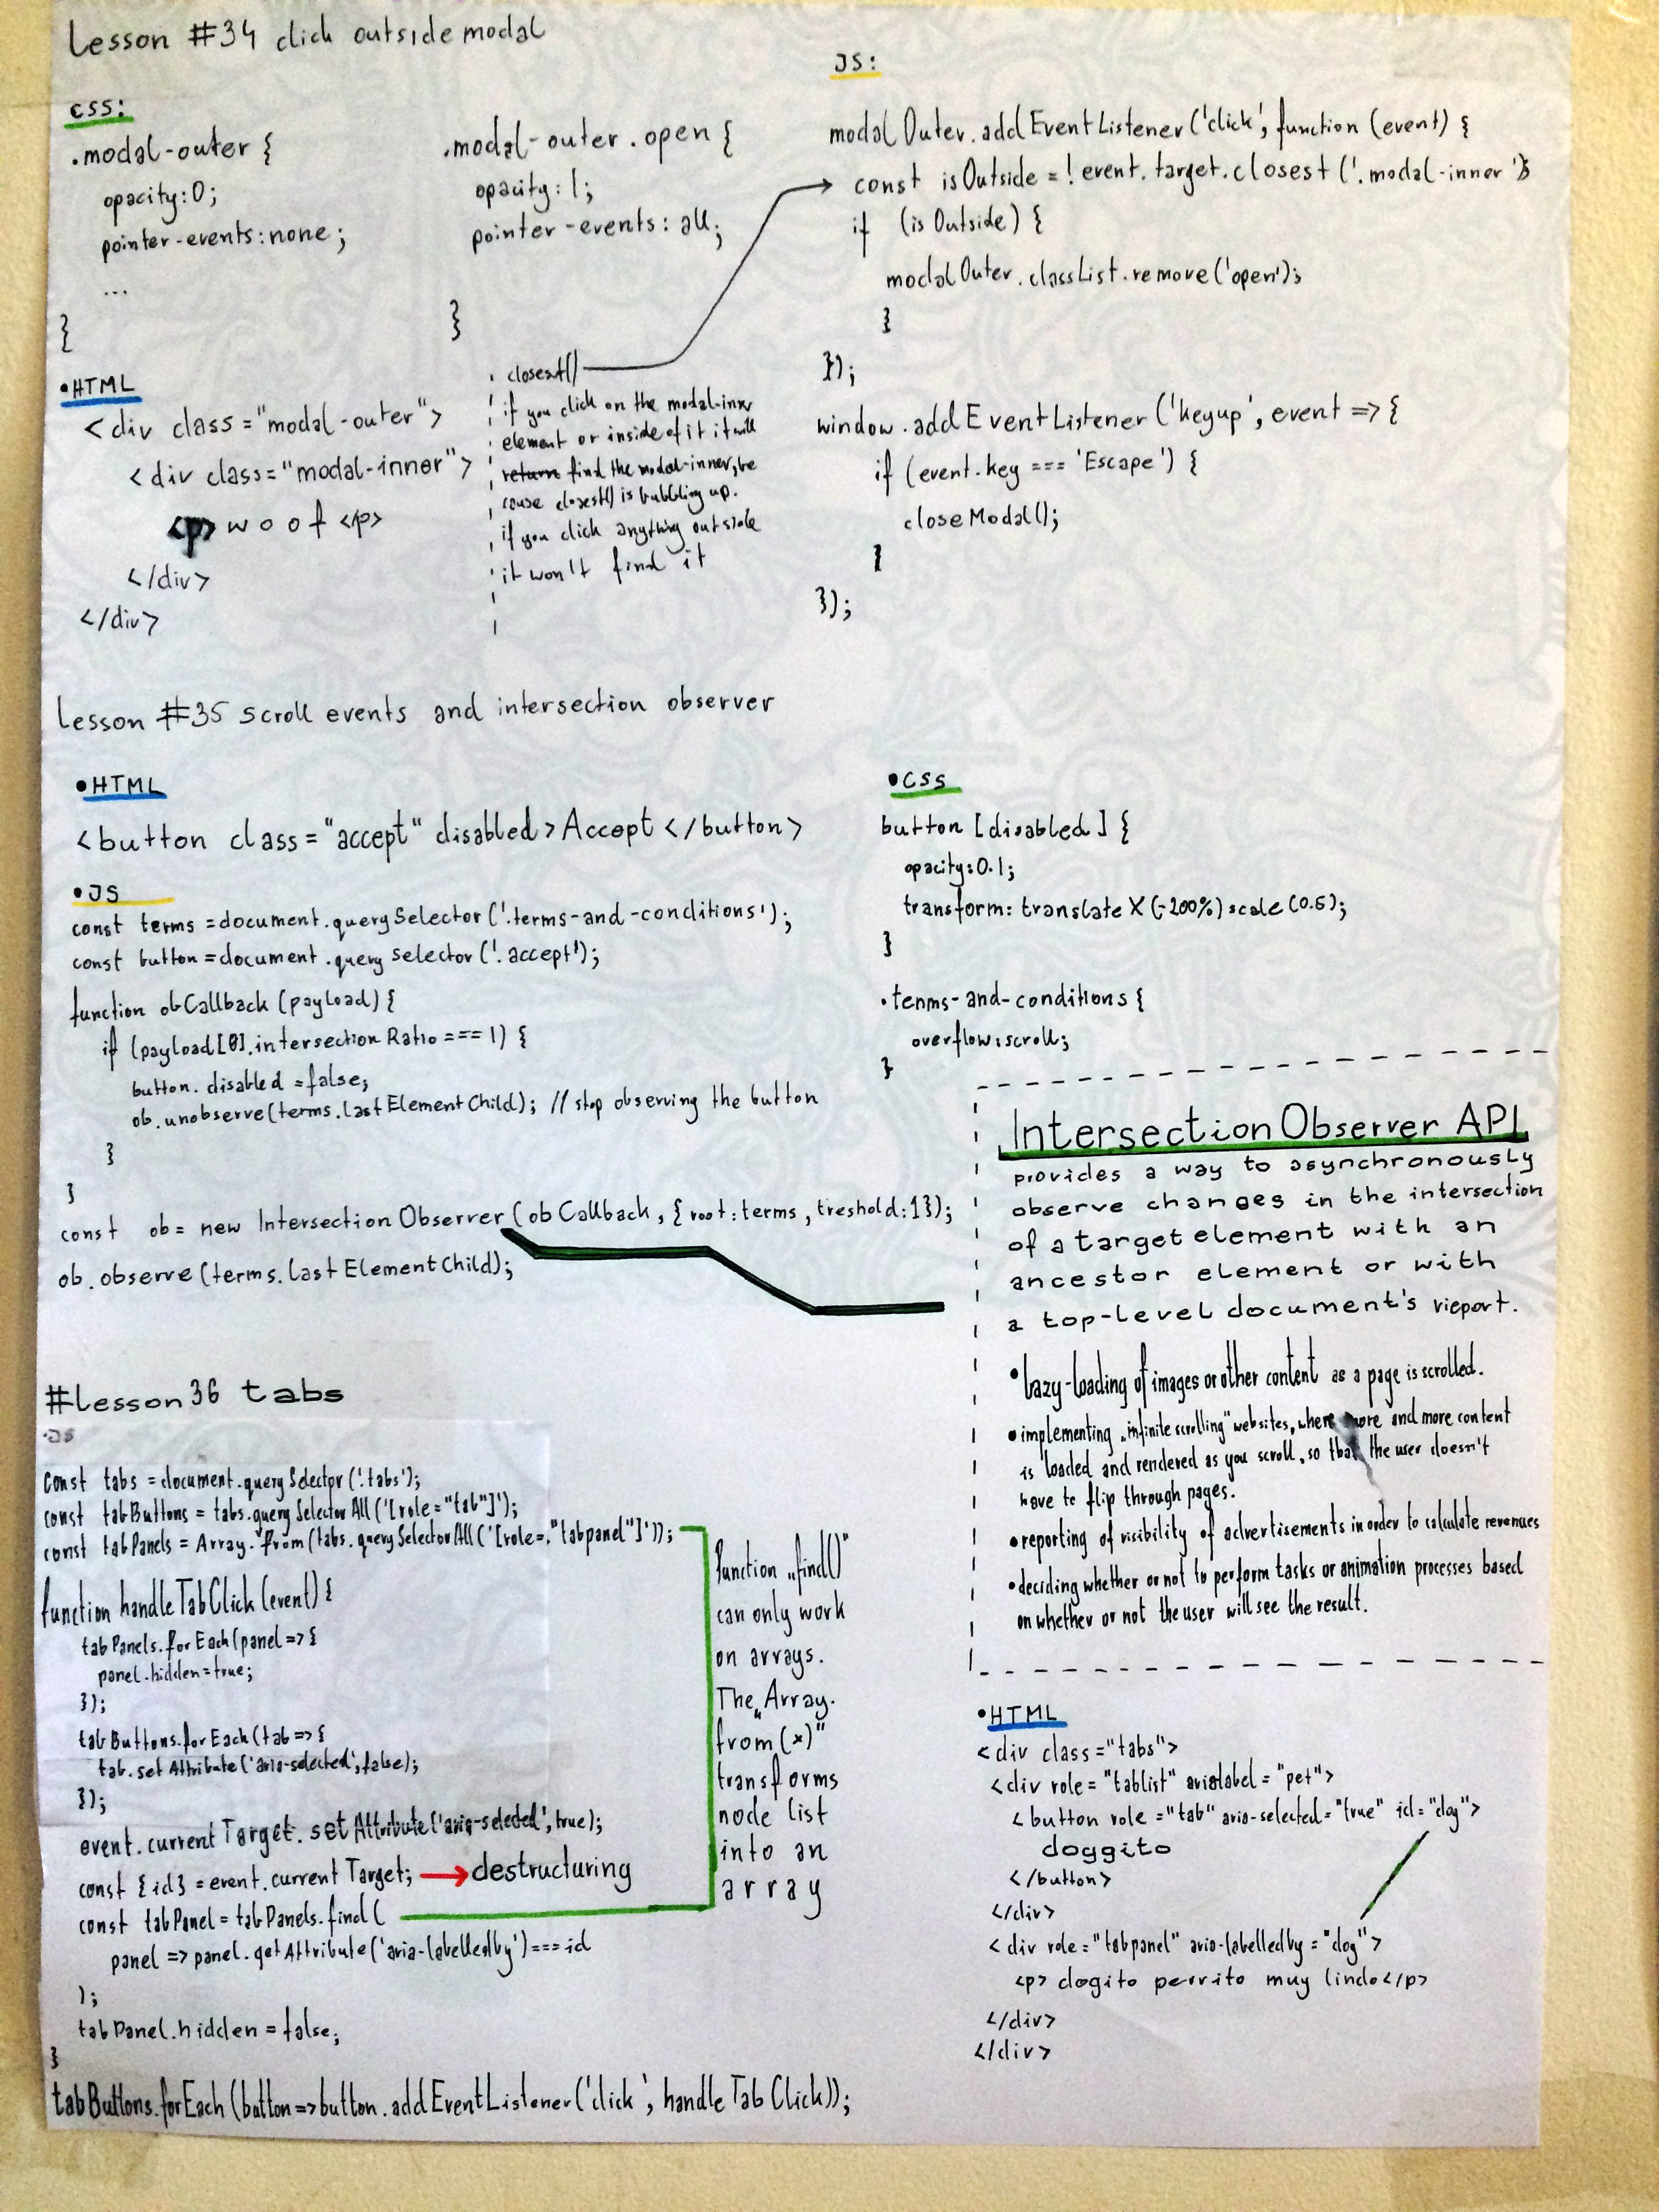 Lesson #34 click outside modal
css:
.modal-outer {
opacity:0;
pointer-events:none;
...
}
.modal-outer.open {
opacity:1;
pointer-events: all;
}
JS:
modalOuter.addEventListener('click', function (event) {
const isOutside = !event.target.closest('.modal-inner');
if (isOutside) {
modalOuter.classList.remove('open');
}
});
window.addEventListener('keyup', event => {
if (event.key === 'Escape') {
closeModal();
}
});
•HTML
<div class="modal-outer">
<div class="modal-inner">
<p> woof </p>
</div>
</div>
closest()
if you click on the modal-inner
element or inside of it it will
return find the modal-inner, be
cause closest() is bubbling up.
if you click anything outside
it won't find it
Lesson #35 scroll events and intersection observer
•HTML
<button class="accept" disabled>Accept</button>
•JS
const terms = document.querySelector('.terms-and-conditions');
const button = document.queryselector('.accept');
function obCallback (payload) {
if (payload[0].intersectionRatio === 1) {
button.disabled = false;
ob.unobserve(terms.lastElementChild); // stop observing the button
}
}
const ob = new IntersectionObserver(obCallback, {root:terms, treshold:1});
ob.observe(terms.lastElementChild);
•CSS
button [disabled] {
opacity:0.1;
transform: translateX(-200%) scale(0.5);
}
.terms-and-conditions {
overflow:scroll;
}
Intersection Observer API
provides a way to asynchronously
observe changes in the intersection
of a target element with an
ancestor element or with
a top-level document's vieport.
•lazy-loading of images or other content as a page is scrolled.
•implementing „infinite scrolling" websites, where more and more content
is loaded and rendered as you scroll, so that the user doesn't
have to flip through pages.
•reporting of visibility of advertisements in order to calculate revenues
•deciding whether or not to perform tasks or animation processes based
on whether or not the user will see the result.
#Lesson 36 tabs
•JS
const tabs = document.querySelector('.tabs');
const tabButtons = tabs.querySelectorAll('[role="tab"]');
const tabPanels = Array.from(tabs.querySelectorAll('[role="tabpanel"]'));
function handleTabClick(event) {
tabPanels.forEach(panel => {
panel.hidden=true;
});
tabButtons.forEach(tab => {
tab.setAttribute('aria-selected',false);
});
event.currentTarget.setAttribute('aria-selected', true);
const {id} = event.currentTarget; → destructuring
const tabPanel = tabPanels.find(
panel => panel.getAttribute('aria-labelledby') === id
);
tabPanel.hidden = false;
}
tabButtons.forEach(button=>button.addEventListener('click', handleTabClick));
Function „find()"
can only work
on arrays.
The „Array.
from(x)"
transforms
node list
into an
array
•HTML
<div class="tabs">
<div role="tablist" arialabel="pet">
<button role="tab" aria-selected="true" id="dog">
doggito
</button>
</div>
<div role="tabpanel" aria-labelledby="dog">
<p> dogito perrito muy lindo</p>
</div>
</div>